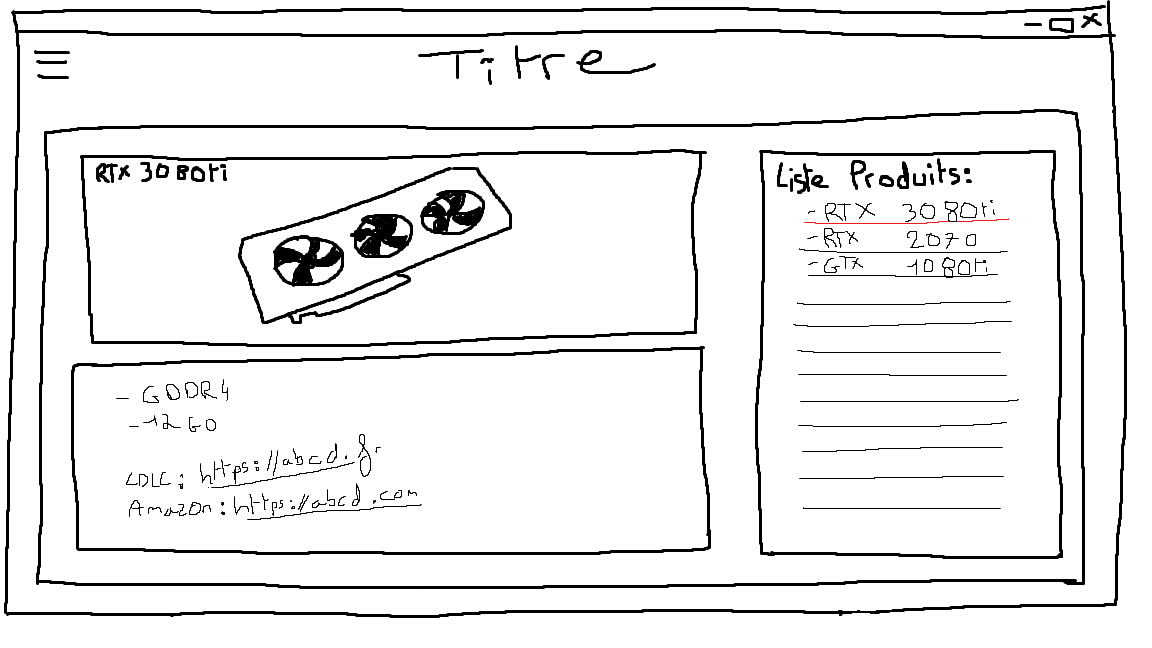 Titre
RTX 3080ti
- GDDR4
- 12GO
LDLC : https://abcd.fr
Amazon : https://abcd.com
Liste Produits:
- RTX 3080ti
- RTX 2070
- GTX 1080ti